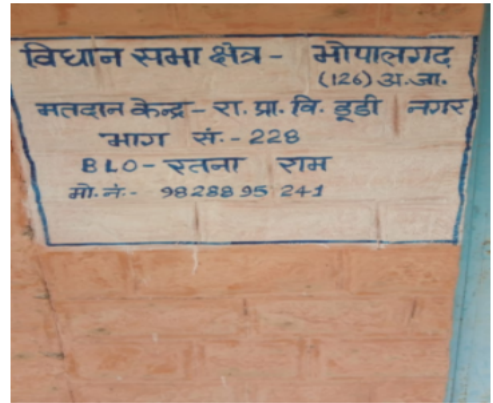 विधान सभा क्षेत्र - भोपालगढ़
(126) अ.जा.
मतदान केन्द्र - रा. प्रा. वि. डूडी नगर
भाग सं. - 228
BLO - रतना राम
मो. नं. - 9828895241